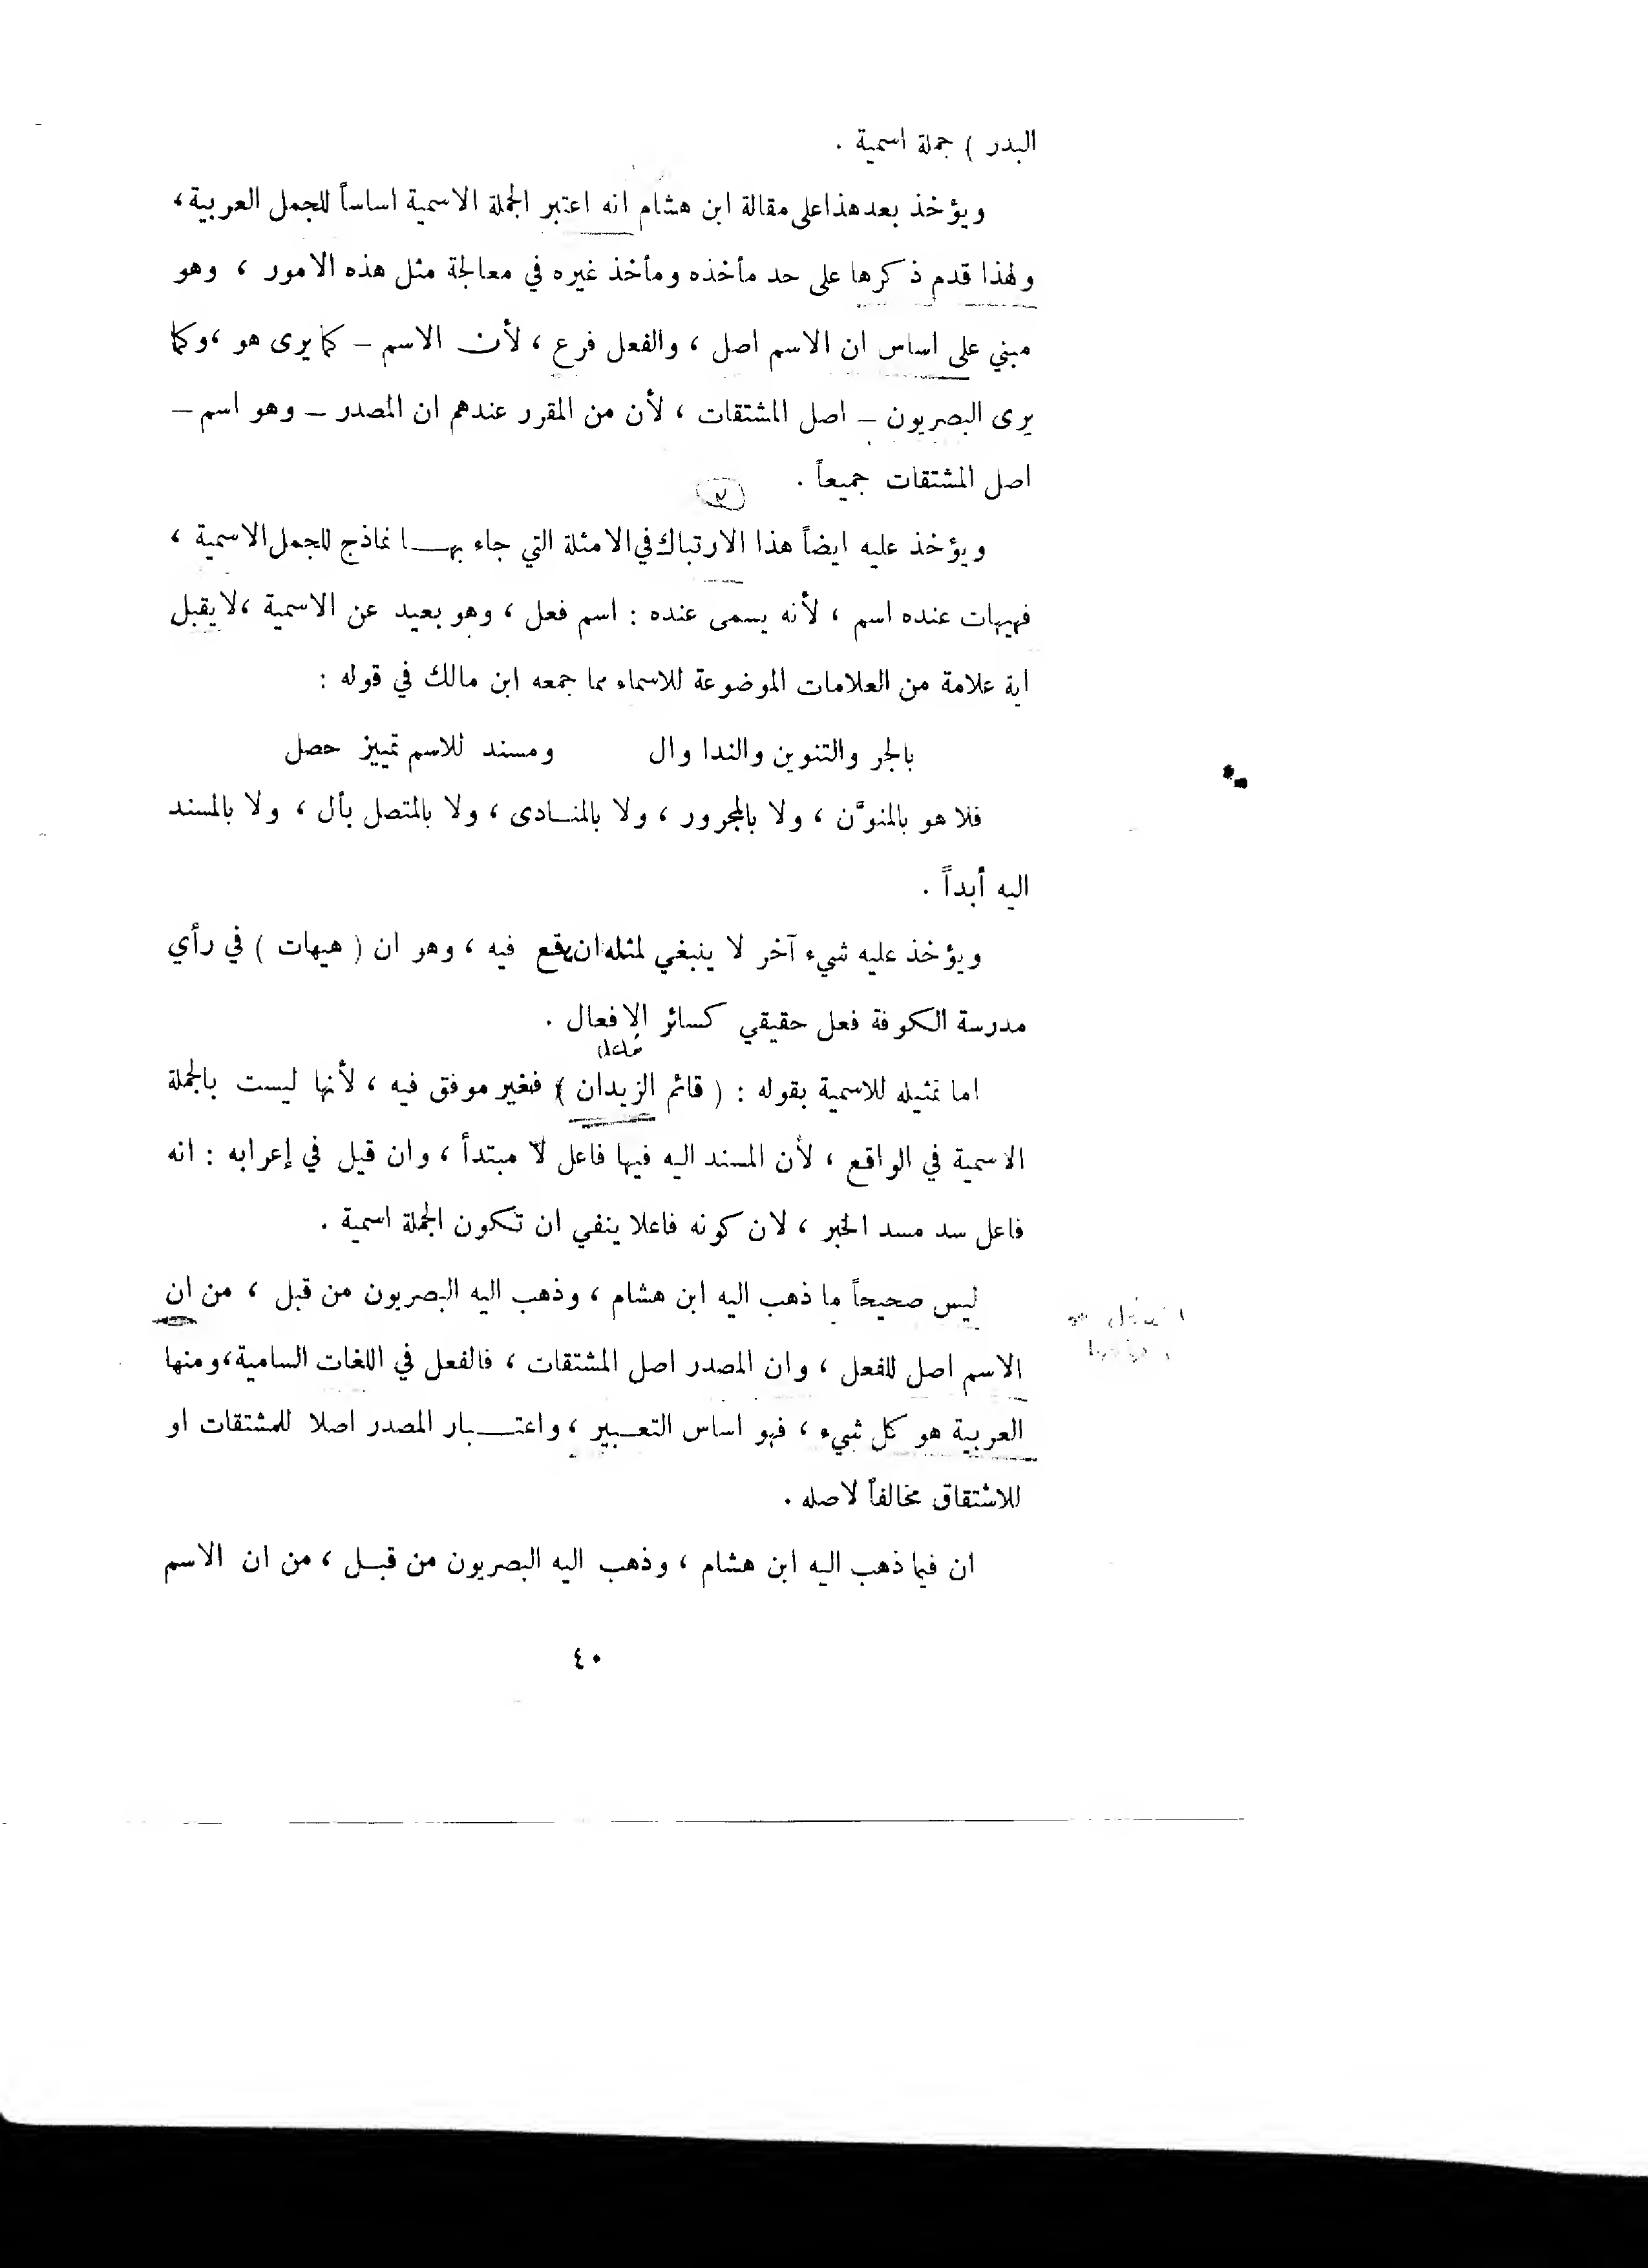 البدر ) جملة اسمية .
ويؤخذ بعد هذا على مقالة ابن هشام انه اعتبر الجملة الاسمية اساساً للجمل العربية ،
ولهذا قدم ذكرها على حد مأخذه ومأخذ غيره في معالجة مثل هذه الامور ، وهو
مبني على اساس ان الاسم اصل ، والفعل فرع ، لأن الاسم – كما يرى هو ، وكما
يرى البصريون – اصل المشتقات ، لأن من المقرر عندهم ان المصدر – وهو اسم –
اصل المشتقات جميعاً .
ويؤخذ عليه ايضاً هذا الارتباك في الامثلة التي جاء بهـــا نماذج للجمل الاسمية ،
فهيهات عنده اسم ، لأنه يسمى عنده : اسم فعل ، وهو بعيد عن الاسمية ، لا يقبل
اية علامة من العلامات الموضوعة للاسماء مما جمعه ابن مالك في قوله :
بالجر والتنوين والندا وال ومسند للاسم تمييز حصل
فلا هو بالمنوَّن ، ولا بالمجرور ، ولا بالمنــادى ، ولا بالمتصل بأل ، ولا بالمسند
اليه أبداً .
ويؤخذ عليه شيء آخر لا ينبغي لمثله ان يقع فيه ، وهو ان ( هيهات ) في رأي
مدرسة الكوفة فعل حقيقي كسائر الافعال .
اما تمثيله للاسمية بقوله : ( قائم الزيدان ) فغير موفق فيه ، لأنها ليست بالجملة
الاسمية في الواقع ، لأن المسند اليه فيها فاعل لا مبتدأ ، وان قيل في إعرابه : انه
فاعل سد مسد الخبر ، لان كونه فاعلا ينفي ان تكون الجملة اسمية .
ليس صحيحاً ما ذهب اليه ابن هشام ، وذهب اليه البصريون من قبل ، من ان
الاسم اصل للفعل ، وان المصدر اصل المشتقات ، فالفعل في اللغات السامية ، ومنها
العربية هو كل شيء ، فهو اساس التعــبير ، واعتـــبار المصدر اصلا للمشتقات او
للاشتقاق مخالفاً لاصله .
ان فيما ذهب اليه ابن هشام ، وذهب اليه البصريون من قبــل ، من ان الاسم
٤٠